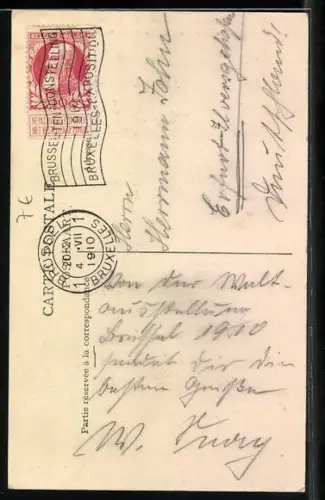 BRUSSEL-TENTOONSTELLING
1910
BRUXELLES-EXPOSITION
7€
CARTE POSTALE
20-21
4 VII
1910
BRUXELLES
Partie réservée à la correspondance
Herrn
Herrmann Jahn
Erfurt-Ilversgehofen
Deutschland!
Von der Welt-
ausstellung
Brüssel 1910
sendet dir die
besten Grüße
W.